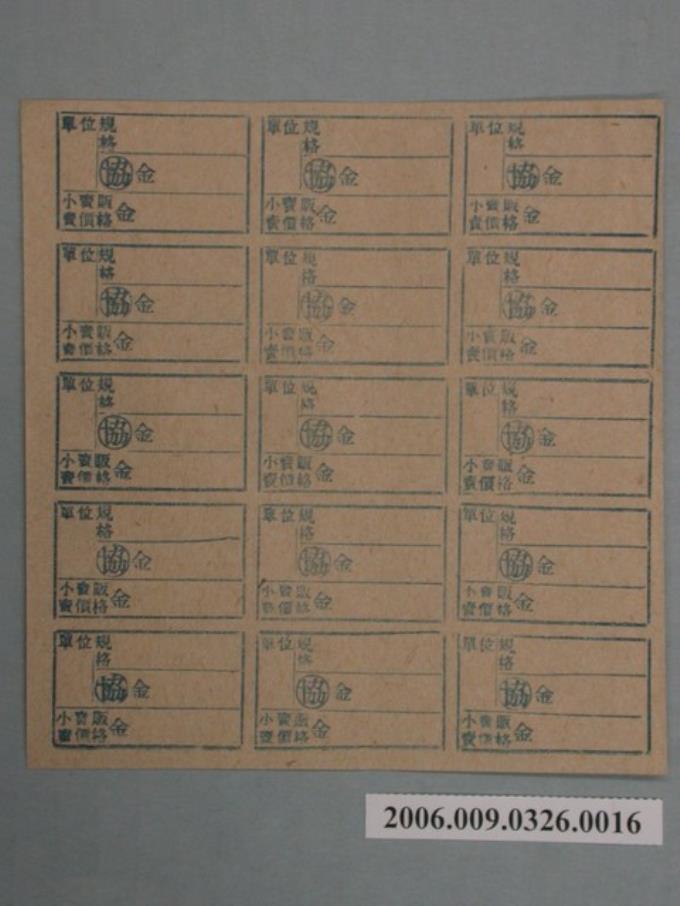 單位規 單位規 單位規
格 格 格
協金 協金 協金
小賣販 小賣販 小賣販
賣價格金 賣價格金 賣價格金
單位規 單位規 單位規
格 格 格
協金 協金 協金
小賣販 小賣販 小賣販
賣價格金 賣價格金 賣價格金
單位規 單位規 單位規
格 格 格
協金 協金 協金
小賣販 小賣販 小賣販
賣價格金 賣價格金 賣價格金
單位規 單位規 單位規
格 格 格
協金 協金 協金
小賣販 小賣販 小賣販
賣價格金 賣價格金 賣價格金
單位規 單位規 單位規
格 格 格
協金 協金 協金
小賣販 小賣販 小賣販
賣價格金 賣價格金 賣價格金
2006.009.0326.0016